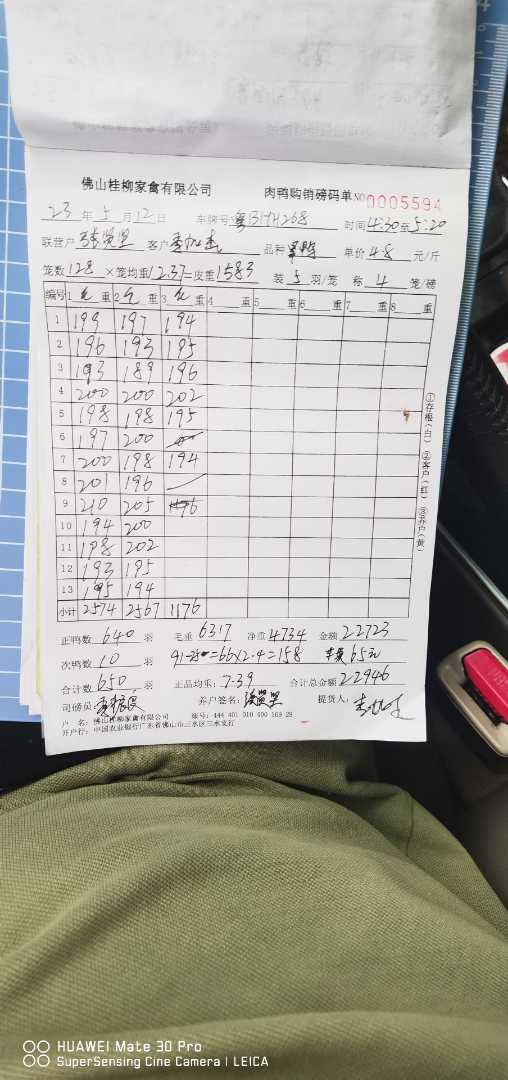 佛山桂柳家禽有限公司 肉鸭购销磅码单 NO 0005594
23 年 5 月 12 日 车牌号: 粤BHH268 时间 4:30至5:20
联营户 客户 品种 单价 4.8 元/斤
笼数 128 ×笼均重 12.37=皮重 1583 装 5 羽/笼 称 4 笼/磅
编号 1 毛 重 2 毛 重 3 毛 重 4 重 5 重 6 重 7 重 8 重
1 199 197 194
2 196 193 195
3 193 189 196
4 200 200 202
5 198 198 195
6 197 200
7 200 198 194
8 201 196
9 210 205
10 194 200
11 198 202
12 193 195
13 195 194
小计 2574 2567 1176
正鸭数 640 羽 毛重 6317 净重 4734 金额 22723
次鸭数 10 羽 91-25=66×2.4=158 65元
合计数 650 羽 正品均重: 7.39 合计总金额 22946
司磅员: 养户签名: 提货人:
户 名: 佛山桂柳家禽有限公司 账号: 444 401 010 400 169 28
开户行: 中国农业银行广东省佛山市三水区三水支行
①存根(白) ②客户(红) ③养户(黄)
HUAWEI Mate 30 Pro
SuperSensing Cine Camera | LEICA